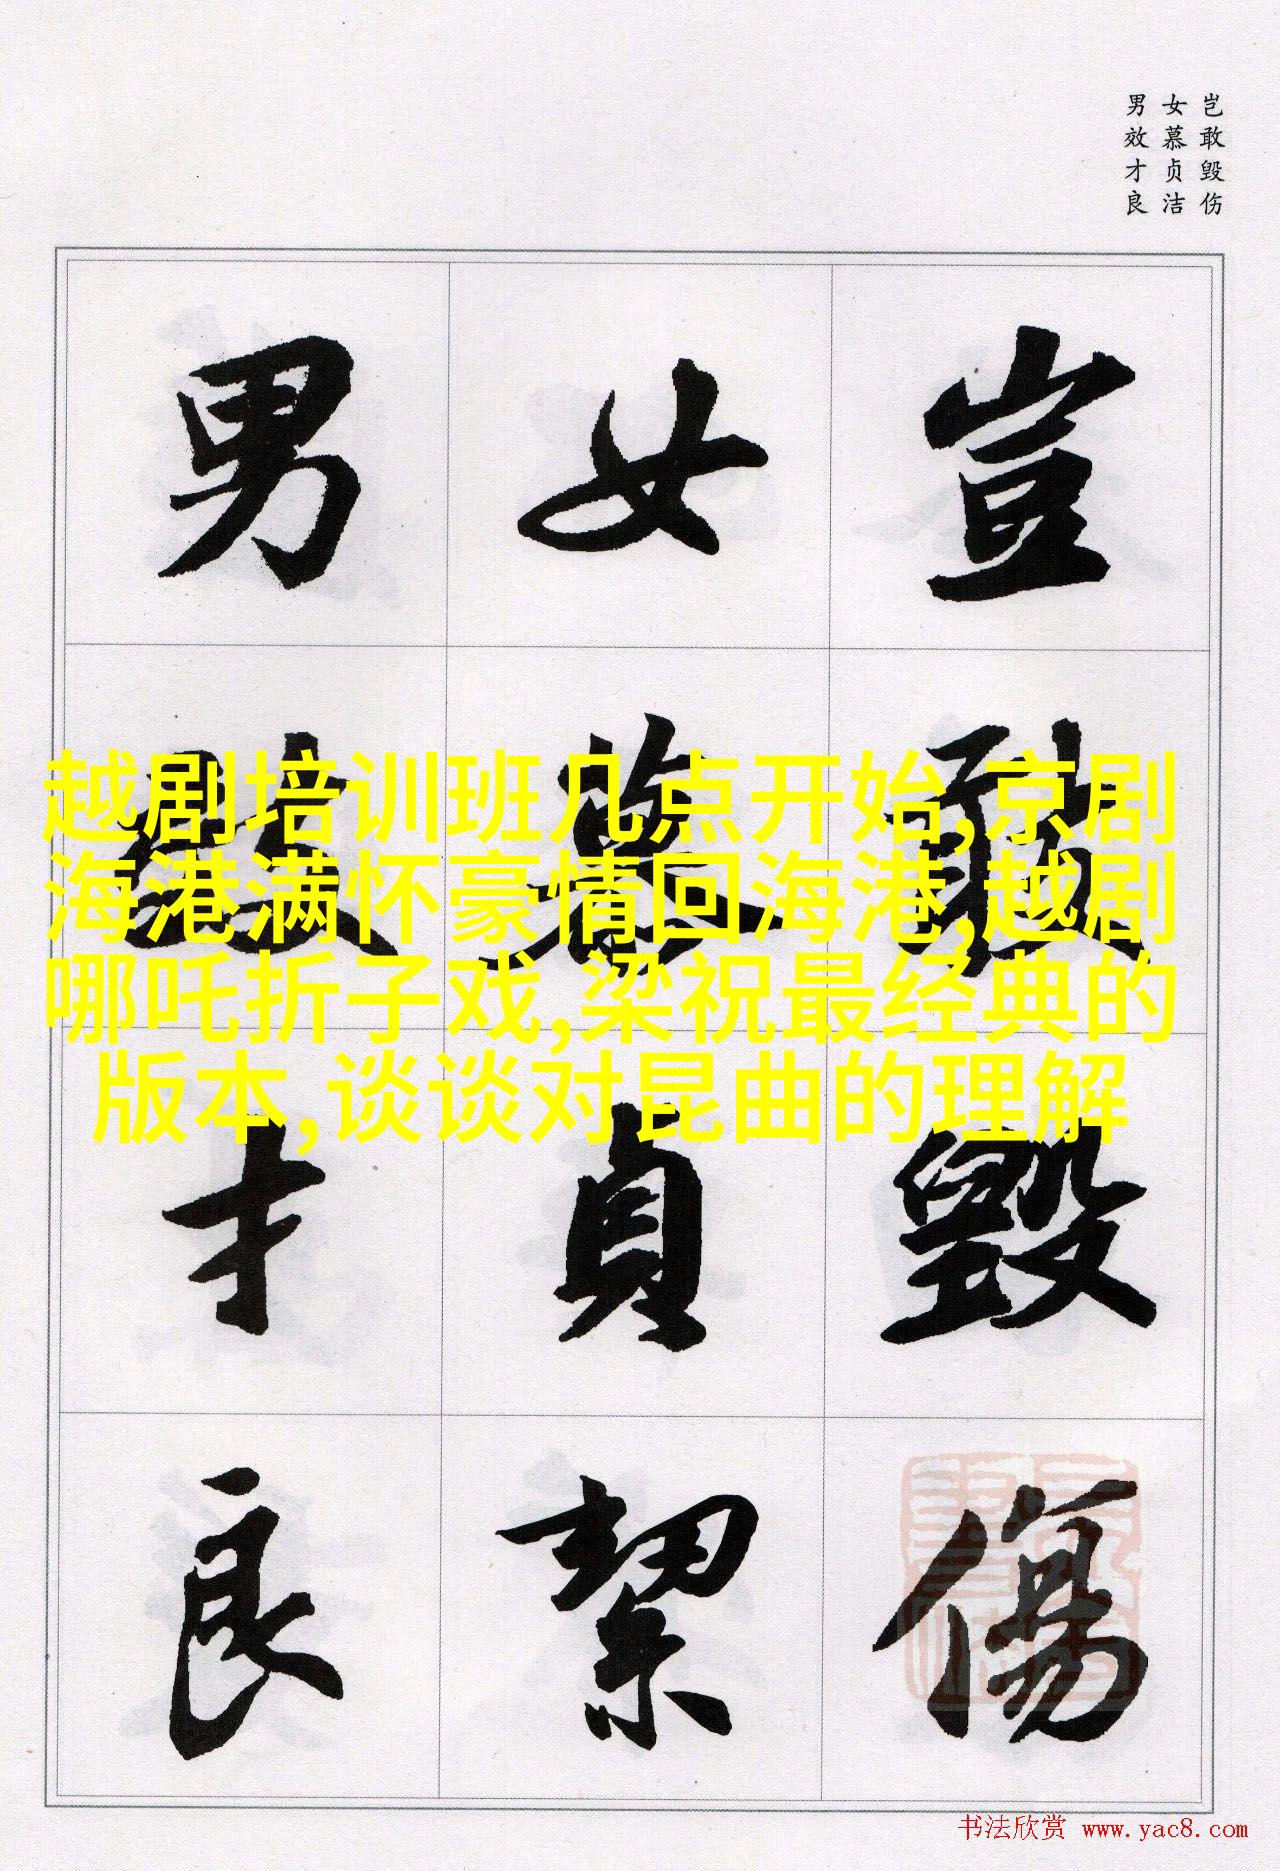 岂敢毁伤
女慕贞洁
男效才良
豈敢毀傷
女慕貞絜
男效才良
越剧培训班几点开始,京剧
海港满怀豪情回海港,越剧
哪吒折子戏,梁祝最经典的
版本,谈谈对昆曲的理解
书法欣赏 www.yac8.com